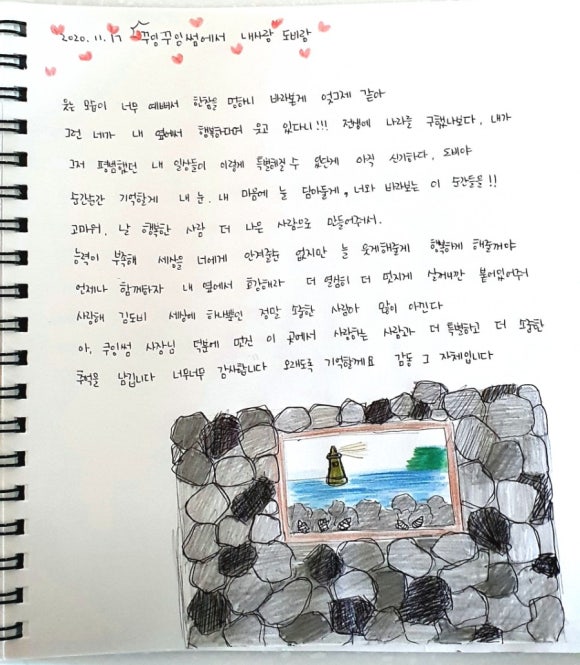 2020.11.17 꾸잉꾸잉썸에서 내사랑 도비랑
웃는 모습이 너무 예뻐서 한참을 멍하니 바라본게 엊그제 같아
그런 네가 내 옆에서 행복하다며 웃고 있다니!!! 전생에 나라를 구했나보다, 내가
그저 평범했던 내 일상들이 이렇게 특별해질 수 있단게 아직 신기하다, 도비야
순간순간 기억할게 내 눈, 내 마음에 늘 담아둘게, 너와 바라보는 이 순간들을!!
고마워, 날 행복한 사람 더 나은 사람으로 만들어주서.
능력이 부족해 세상을 너에게 안겨줄순 없지만 늘 웃게해줄게 행복하게 해줄꺼야
언제나 함께하자 내 옆에서 호강해라 더 열심히 더 멋지게 살거니깐 붙어있어주어
사랑해 김도비 세상에 하나뿐인 정말 소중한 사람아 많이 아낀다
아, 쿠잉썸 사장님 덕분에 멋진 이 곳에서 사랑하는 사람과 더 특별하고 더 소중한
추억을 남깁니다 너무너무 감사합니다 오래도록 기억할게요 감동 그 자체입니다